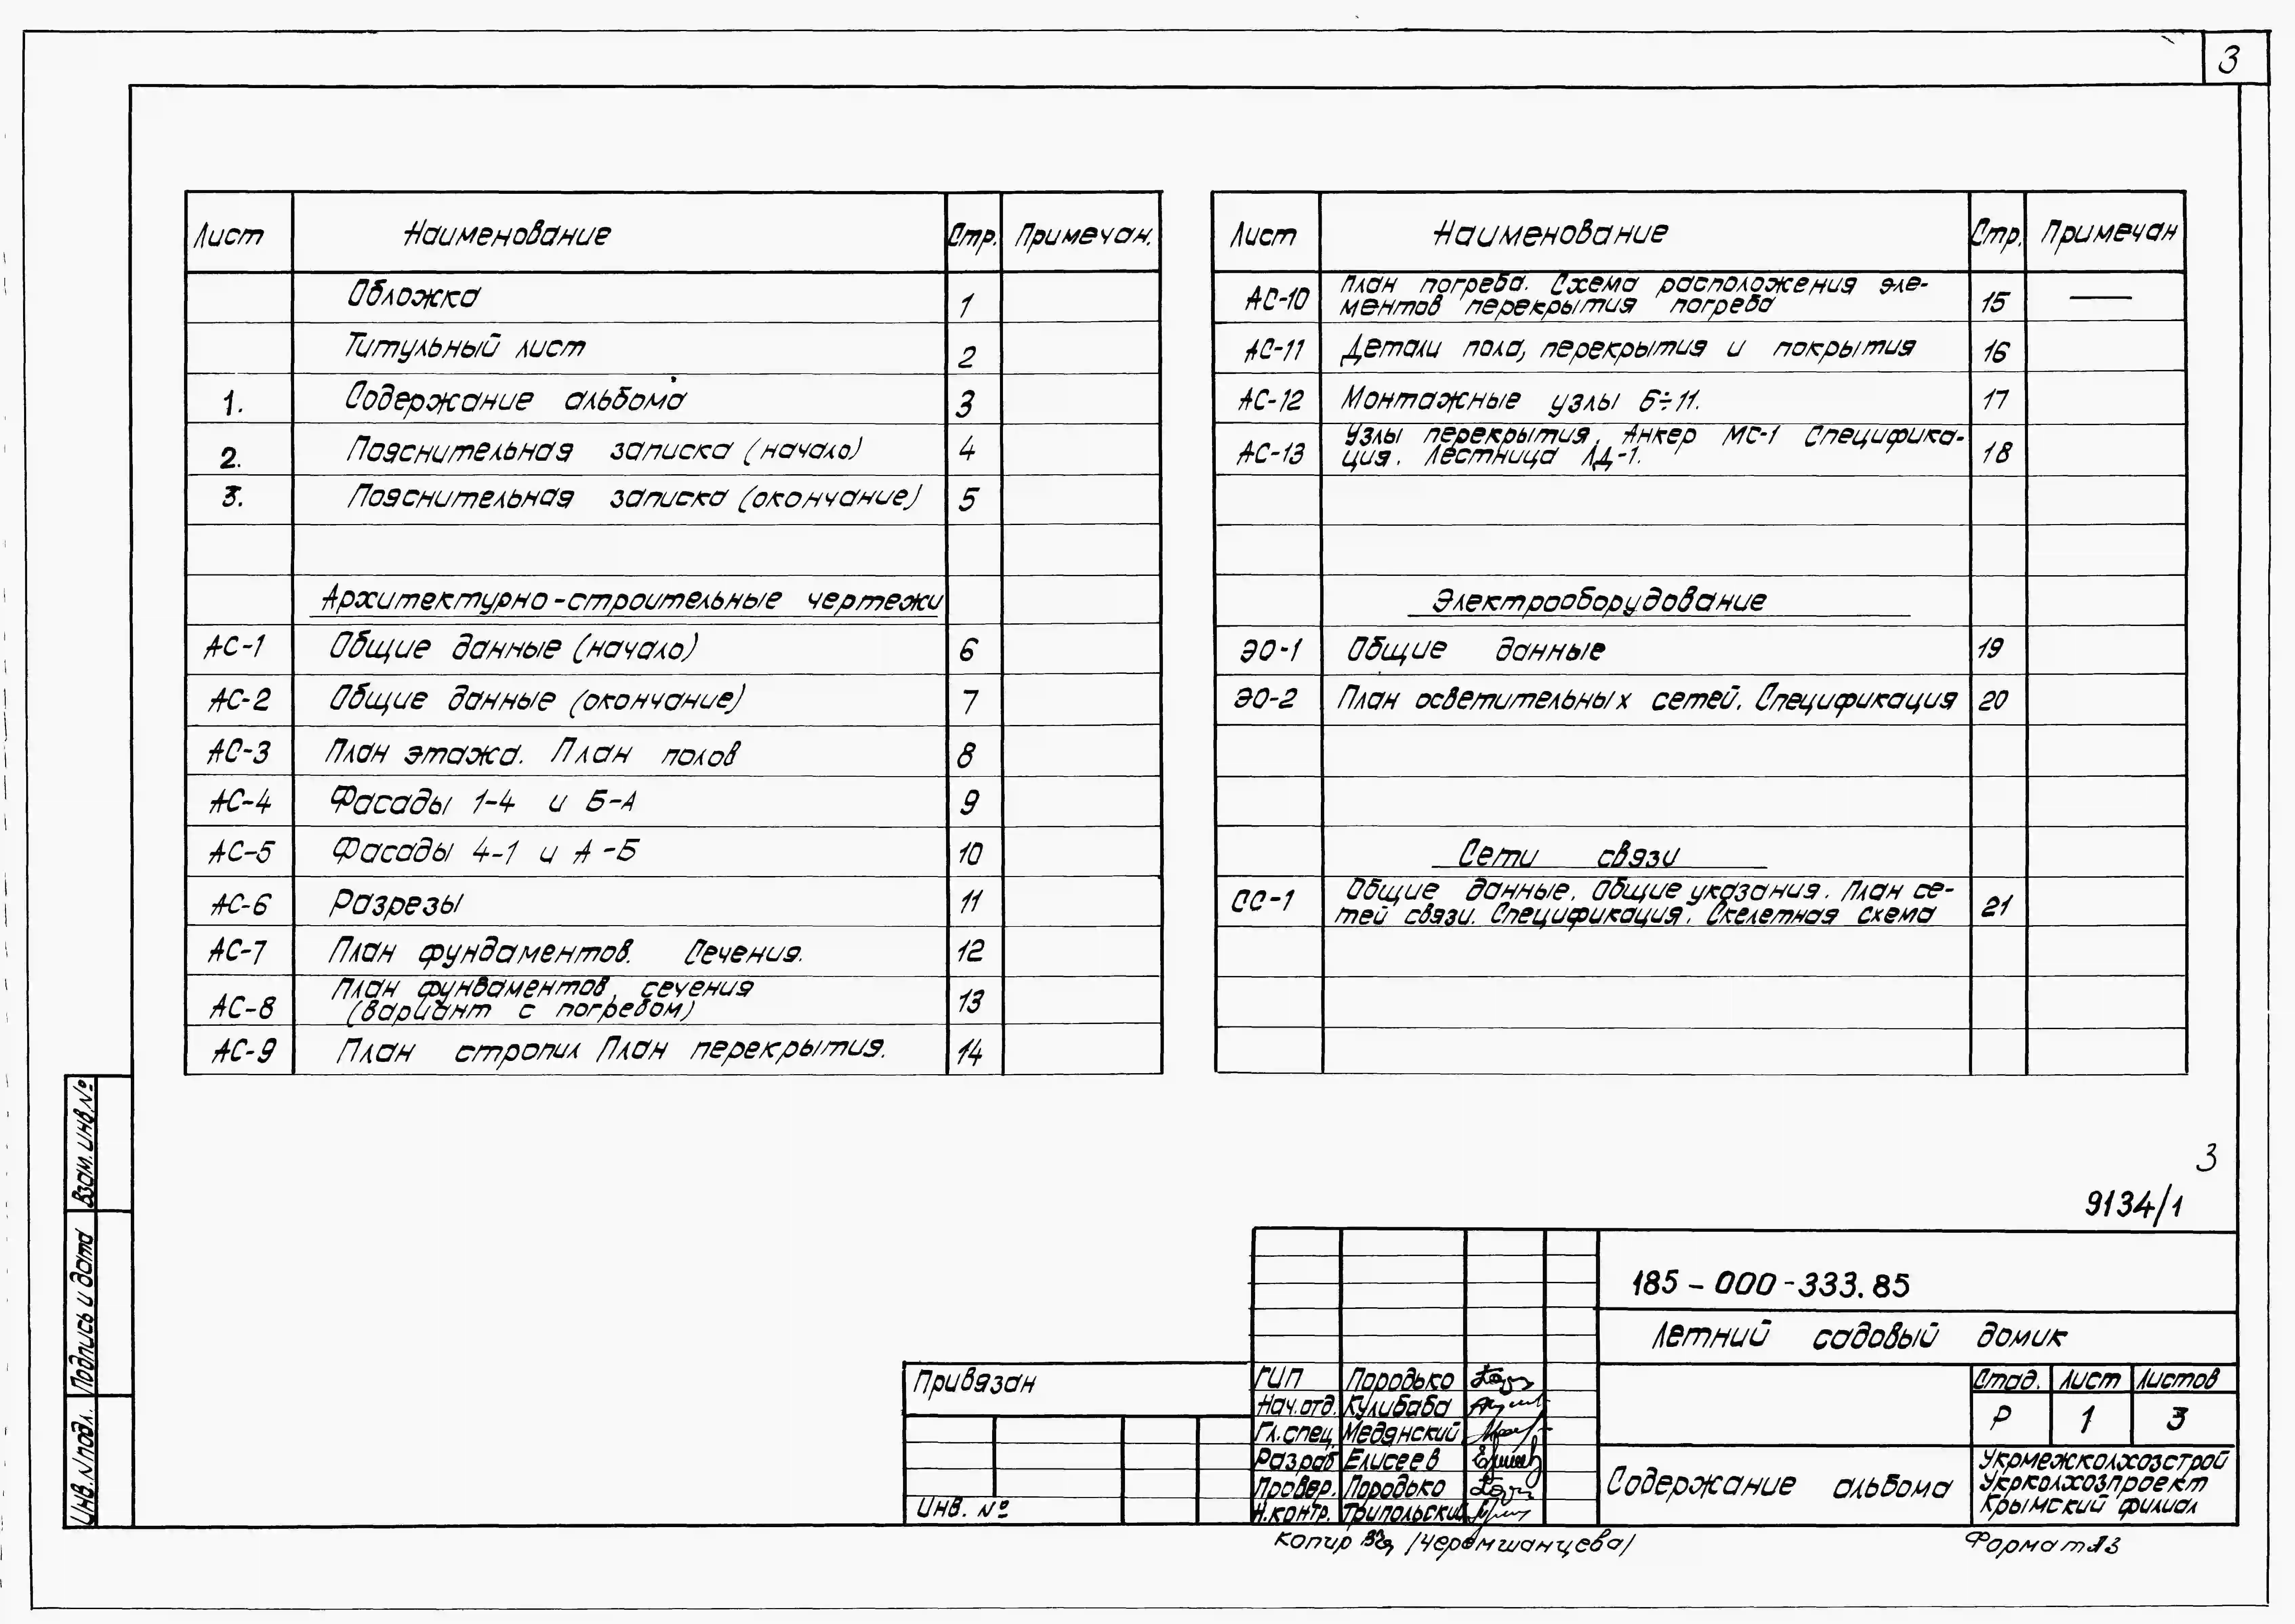 3
Лист Наименование Стр. Примечан.
Обложка 1
Титульный лист 2
1. Содержание альбома 3
2. Пояснительная записка (начало) 4
3. Пояснительная записка (окончание) 5
Архитектурно-строительные чертежи
АС-1 Общие данные (начало) 6
АС-2 Общие данные (окончание) 7
АС-3 План этажа. План полов 8
АС-4 Фасады 1-4 и Б-А 9
АС-5 Фасады 4-1 и А-Б 10
АС-6 Разрезы 11
АС-7 План фундаментов. Сечения. 12
АС-8 План фундаментов, сечения 13
(вариант с погребом)
АС-9 План стропил План перекрытия. 14
Лист Наименование Стр. Примечан
АС-10 План погреба. Схема расположения эле- 15 —
ментов перекрытия погреба
АС-11 Детали пола, перекрытия и покрытия 16
АС-12 Монтажные узлы 6÷11. 17
АС-13 Узлы перекрытия. Анкер МС-1 Специфика- 18
ция. Лестница ЛД-1.
Электрооборудование
ЭО-1 Общие данные 19
ЭО-2 План осветительных сетей. Спецификация 20
Сети связи
СС-1 Общие данные. Общие указания. План се- 21
тей связи. Спецификация. Скелетная схема
Взам. инв. №
Подпись и дата
Инв. № подл.
3
9134/1
185-000-333.85
Летний садовый домик
Привязан
Инв. №
ГИП Породько
Нач.отд. Кулибаба
Гл.спец. Медянский
Разраб Елисеев
Провер. Породько
Н.контр. Трипольский
Стад. Лист Листов
Р 1 3
Содержание альбома
Укрмежколхозстрой
Укрколхозпроект
Крымский филиал
Копир /Черемшанцева/
Формат А3